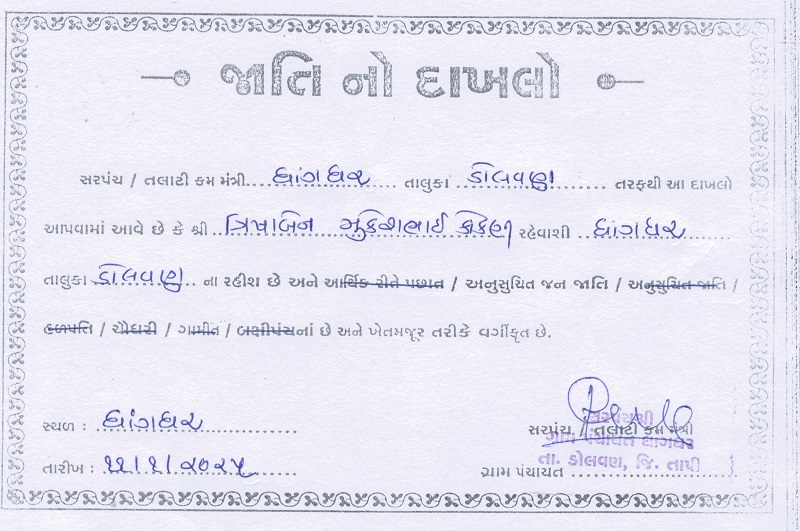 જાતિ નો દાખલો
સરપંચ / તલાટી કમ મંત્રી ધાંગધર તાલુકા ડોલવણ તરફથી આ દાખલો
આપવામાં આવે છે કે શ્રી ત્રિષાબેન મુકેશભાઈ કોંકણી રહેવાશી ધાંગધર
તાલુકા ડોલવણ ના રહીશ છે અને આર્થિક રીતે પછાત / અનુસુચિત જન જાતિ / અનુસુચિત જાતિ /
હળપતિ / ચૌધરી / ગામીત / બક્ષીપંચનાં છે અને ખેતમજૂર તરીકે વર્ગીકૃત છે.
સ્થળ : ધાંગધર
તારીખ : ૧૧/૧/૨૦૨૫
સરપંચ / તલાટી કમ મંત્રી
સરપંચશ્રી
ગ્રામ પંચાયત ધાંગધર
તા. ડોલવણ, જિ. તાપી
ગ્રામ પંચાયત